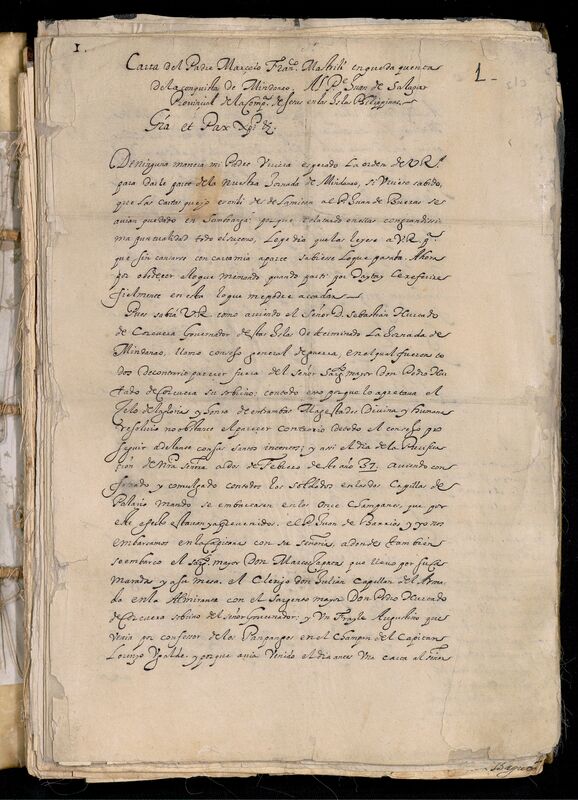 1.
1
Carta del Padre Marcelo Fran.co Mastrili en que da quenta
de la conquista de Mindanao, Al P.e Juan de Salazar
Provincial de la Comp.a de Jesus en las Islas Philippinas.
Gra et Pax Xpi &.
De ninguna manera mi Padre Viviera esperado La orden de V R.a
para darle parte de la nuestra Jornada de Mindanao, si Uviese sabido,
que las cartas que yo escribi desde Lamitan al P. Juan de Bueras se
avian quedado en Samboanga: por que relatando en ellas con grandissi
ma puntualidad todo el suceso, Le pedia que las leyera a V R. p.a
que sin cansarse con carta mia aparte sabiese lo que pasaba. Ahora
por obedecer a lo que me mando quando parti por Taytay Le referire
fielmente en esta lo que me podre acordar
Pues sabrá V R. como aviendo el Señor D. Sebastian Hurtado
de Corcuera Governador de estas Islas determinado La Jornada de
Mindanao, llamo consejo general de guerra, en el qual fueron to
dos de contrario parecer fuera del Señor Sarg.to mayor Don Pedro Hur
tado de Corcuera su sobrino: con todo esso porque lo apretava el
zelo de la gloria y honra de entrambas Magestades Divina y humana
resolvio no obstante el parecer contrario de todo el consejo pro
seguir adelante con sus santos intentos; y asi el dia de la Purifica
cion de Nra Señora a dos de Febrero de este año 37. aviendo con
fesado y comulgado con todos los soldados en las dos Capillas de
Palacio mando se embarcasen en los Once Champanes, que por
este efecto estavan ya prevenidos. el P. Juan de Barrios y yo nos
embarcamos en la Capitana con su señoria, a donde tambien
se embarco el sarg.to mayor Don Marcos Zapata que llevo por su Ca
marada y a su mesa. el Clerigo don Julian Capellan del Arma
da en la Almiranta con el Sargento mayor Don Pedro Hurtado
de Corcuera sobrino del señor Governador; y Un Frayle Augustino que
venia por confesor de los Pampangos en el champan del Capitan
Lorenzo Ugalde. y porque avia venido el dia antes Una carta al señor